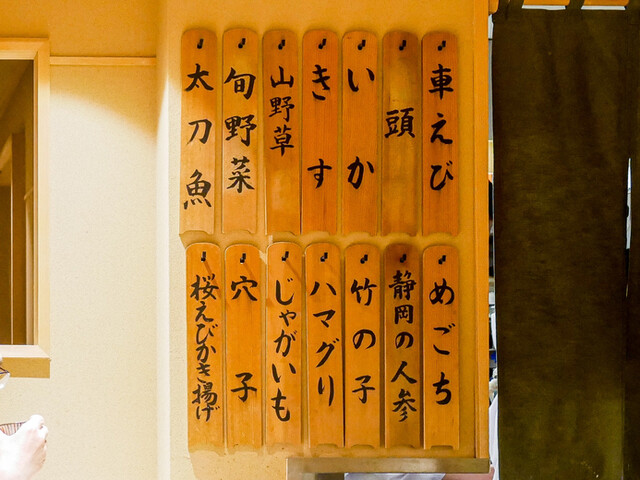 車えび
頭
いか
きす
山野草
旬野菜
太刀魚
めごち
静岡の人参
竹の子
ハマグリ
じゃがいも
穴子
桜えびかき揚げ